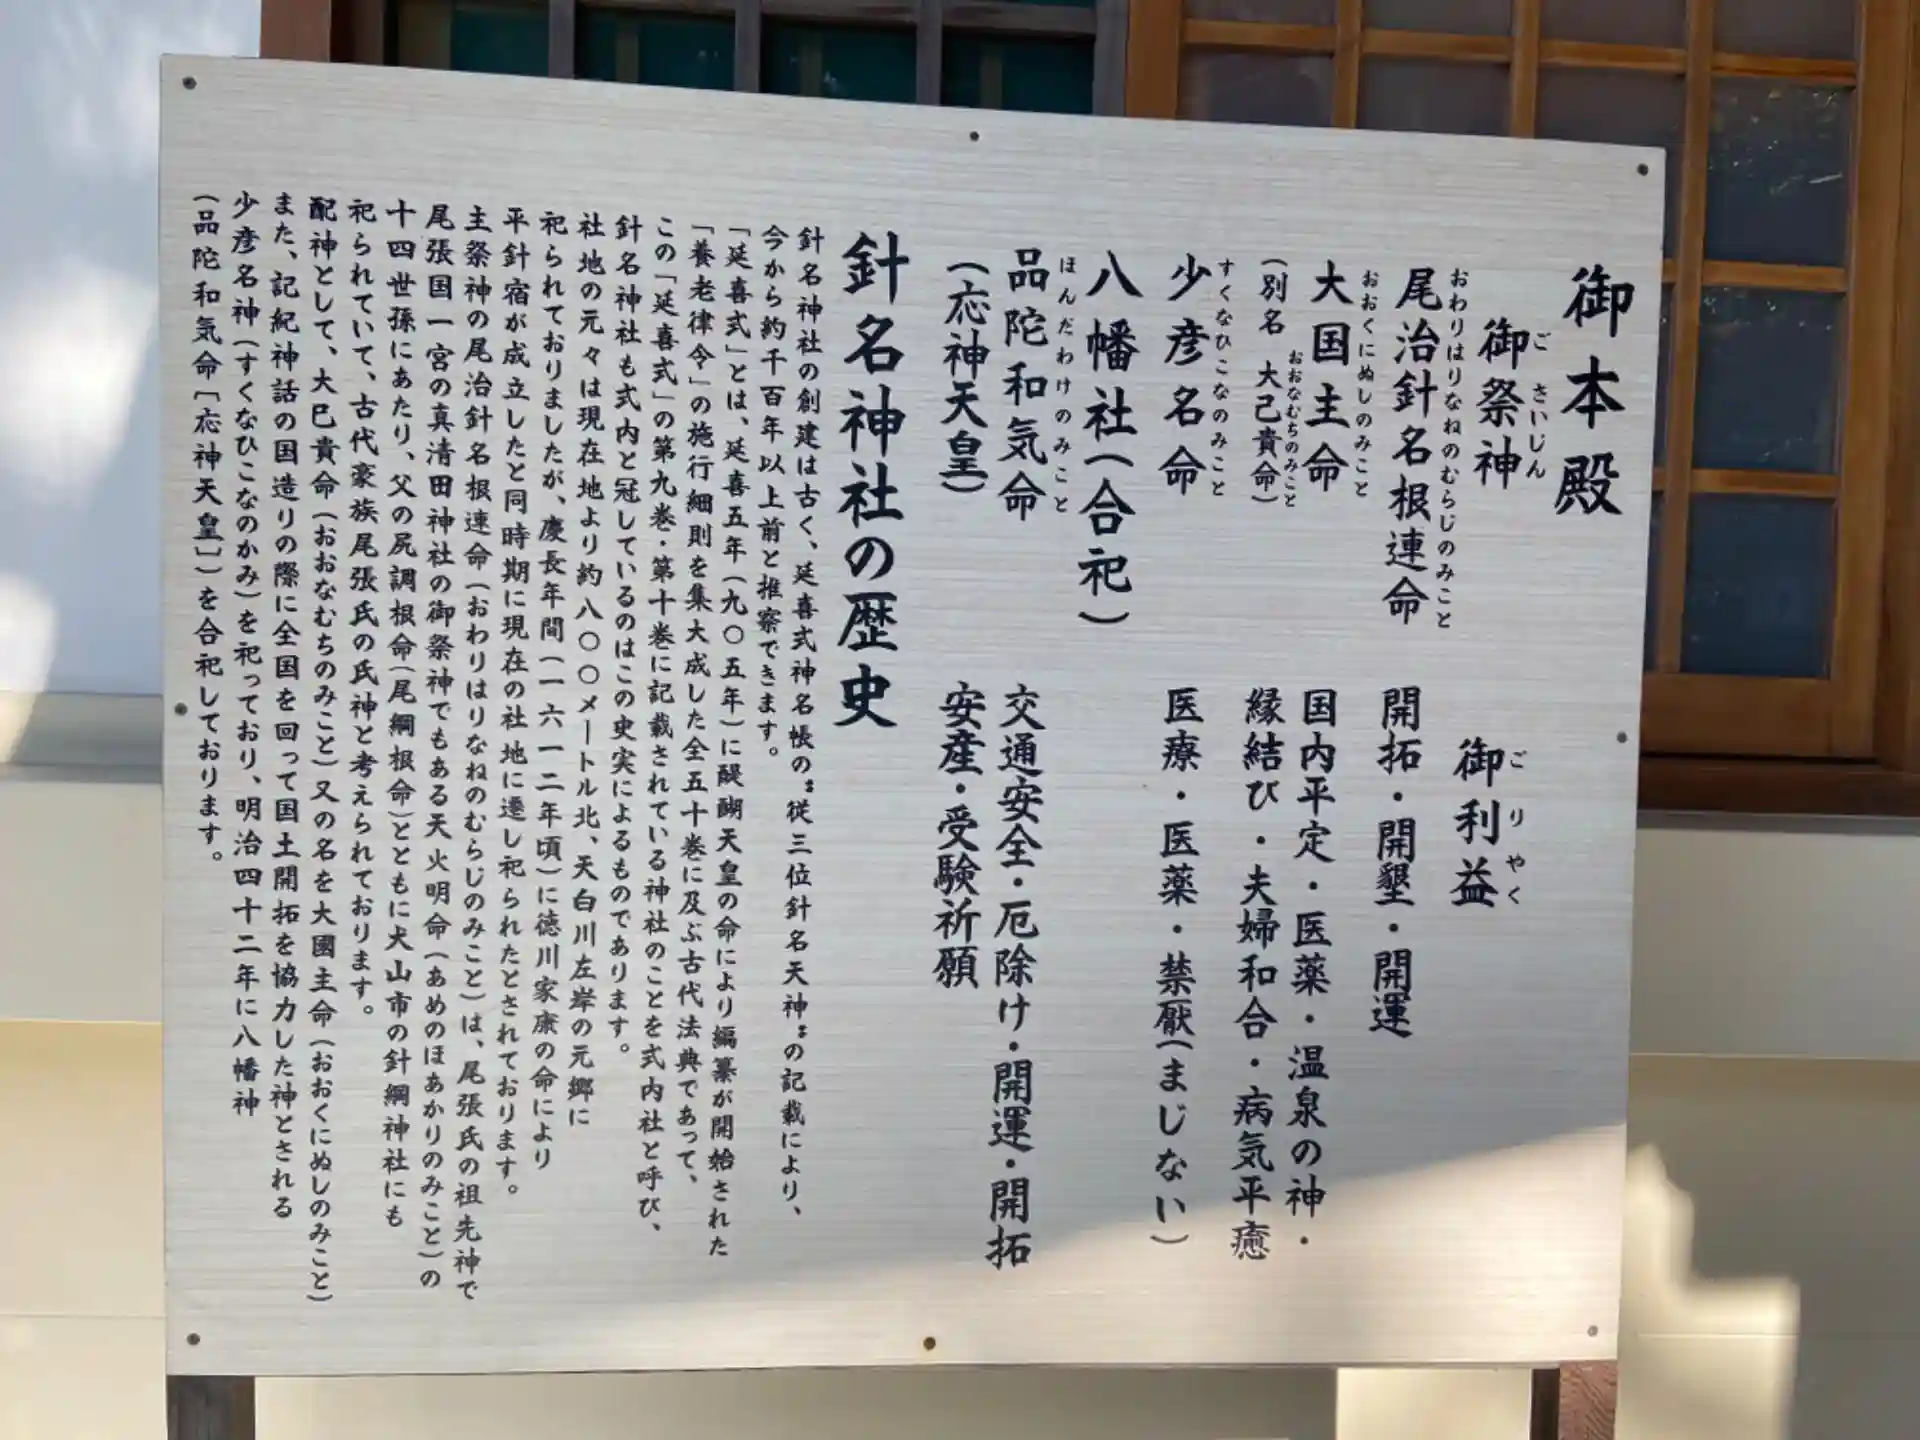 御本殿
御祭神
ごさいじん
御利益
ごりやく
尾治針名根連命
おわりはりなねのむらじのみこと
開拓・開墾・開運
大国主命
おおくにぬしのみこと
国内平定・医薬・温泉の神・
(別名 大己貴命)
おおなむちのみこと
縁結び・夫婦和合・病気平癒
少彦名命
すくなひこなのみこと
医療・医薬・禁厭(まじない)
八幡社(合祀)
品陀和気命
ほんだわけのみこと
交通安全・厄除け・開運・開拓
(応神天皇)
安産・受験祈願
針名神社の歴史
針名神社の創建は古く、延喜式神名帳の〝従三位針名天神〟の記載により、
今から約千百年以上前と推察できます。
「延喜式」とは、延喜五年(九〇五年)に醍醐天皇の命により編纂が開始された
「養老律令」の施行細則を集大成した全五十巻に及ぶ古代法典であって、
この「延喜式」の第九巻・第十巻に記載されている神社のことを式内社と呼び、
針名神社も式内と冠しているのはこの史実によるものであります。
社地の元々は現在地より約八〇〇メートル北、天白川左岸の元郷に
祀られておりましたが、慶長年間(一六一二年頃)に徳川家康の命により
平針宿が成立したと同時期に現在の社地に遷し祀られたとされております。
主祭神の尾治針名根連命(おわりはりなねのむらじのみこと)は、尾張氏の祖先神で
尾張国一宮の真清田神社の御祭神でもある天火明命(あめのほあかりのみこと)の
十四世孫にあたり、父の尻調根命(尾綱根命)とともに犬山市の針綱神社にも
祀られていて、古代豪族尾張氏の氏神と考えられております。
配神として、大己貴命(おおなむちのみこと)又の名を大國主命(おおくにぬしのみこと)
また、記紀神話の国造りの際に全国を回って国土開拓を協力した神とされる
少彦名神(すくなひこなのかみ)を祀っており、明治四十二年に八幡神
(品陀和気命[応神天皇])を合祀しております。